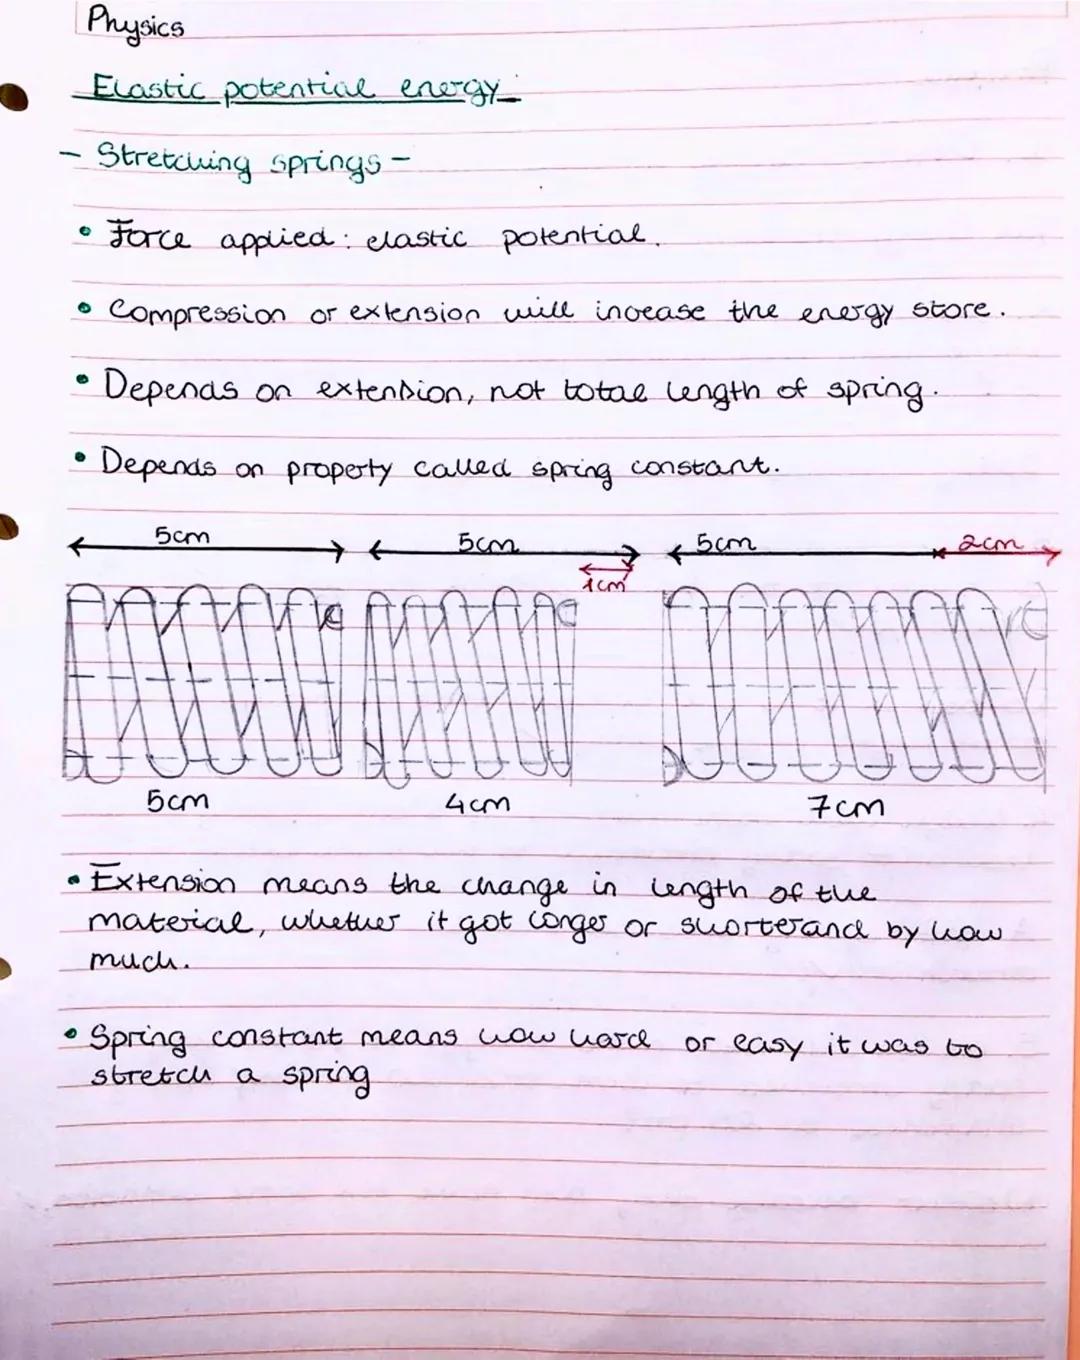 Physics
Elastic potential energy
- Stretching springs -
• Force applied: elastic potential.
• Compression or extension will increase the energy store.
• Depends on extension, not total length of spring.
• Depends on property called spring constant.
5cm 5cm 5cm 2cm
1cm
5cm 4cm 7cm
• Extension means the change in length of the
material, whether it got longer or shorter and by how
much.
• Spring constant means how hard or easy it was to
stretch a spring